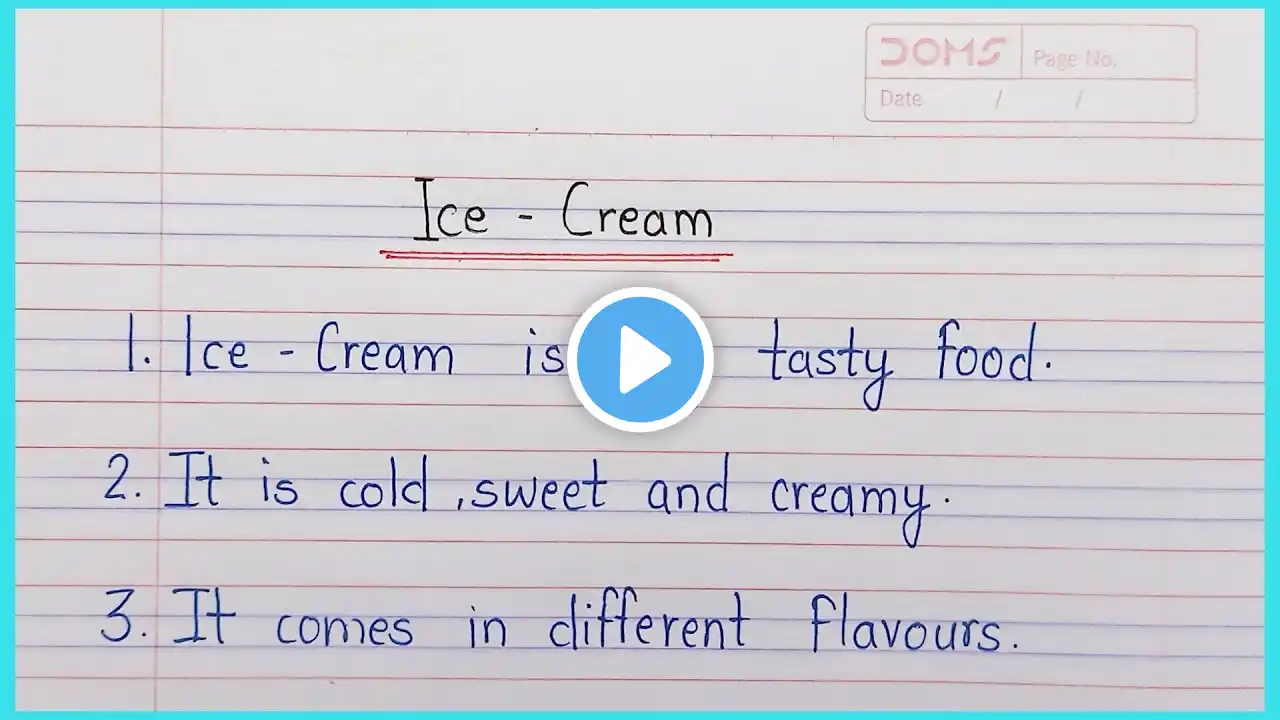 DOMS Page No.
Date / /
Ice - Cream
1. Ice - Cream is tasty food.
2. It is cold , sweet and creamy.
3. It comes in different flavours.